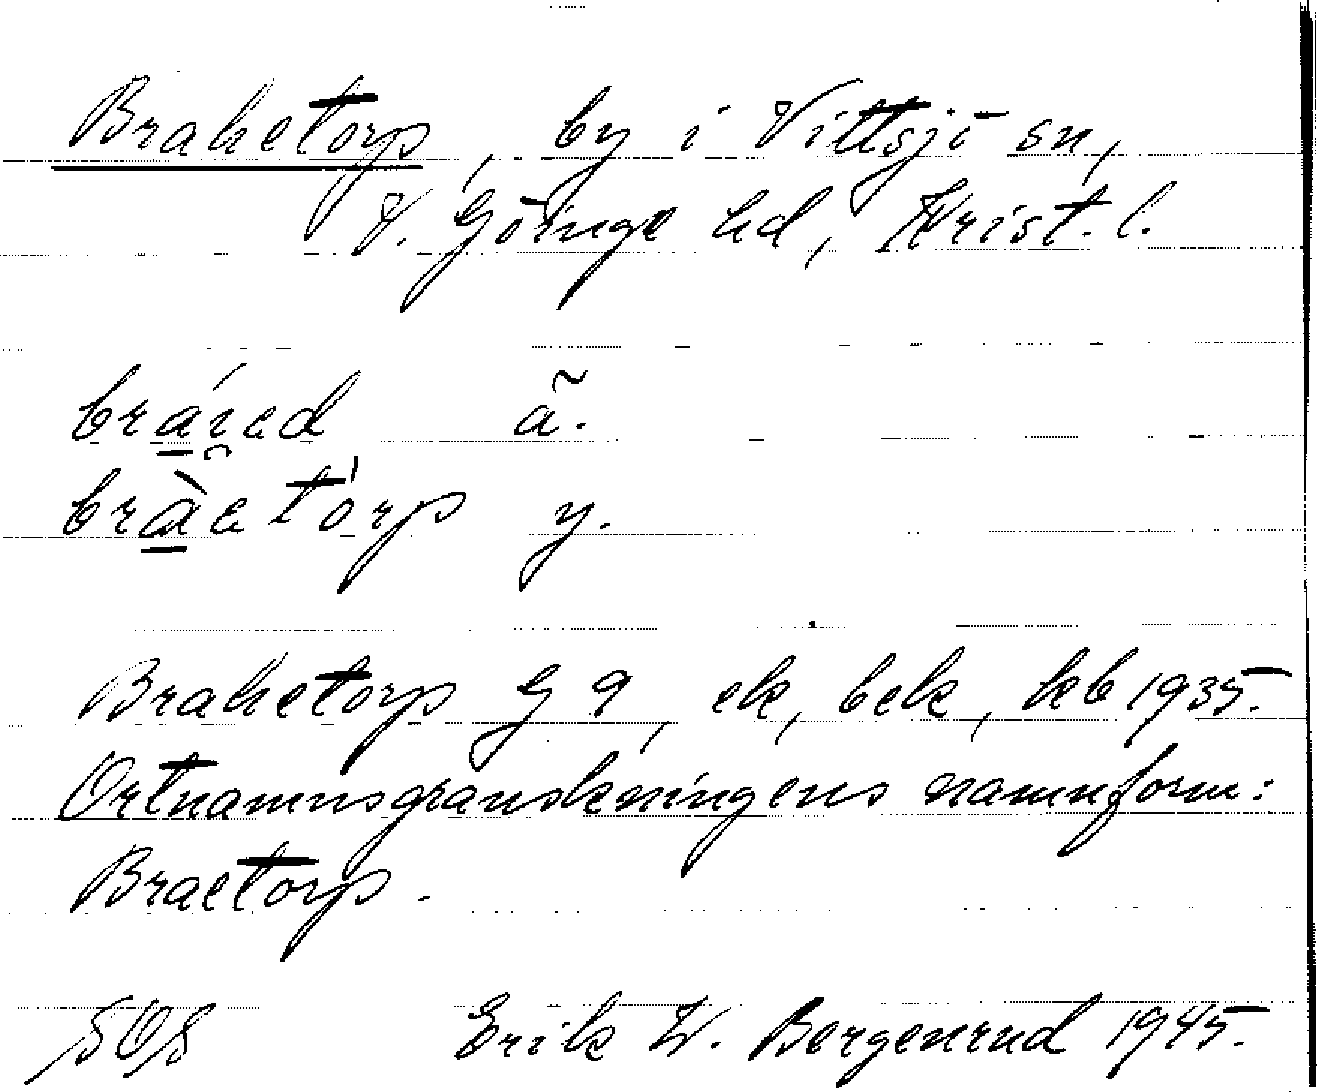 Brahetorp, by i Vittsjö sn,
V. Göinge hd, Krist. l.
bráied ã.
bràetórp y.
Brahetorp G 9, ek, bek, kb 1935.
Ortnamnsgranskningens namnform:
Braetorp.
SOS Erik W. Bergenrud 1945.